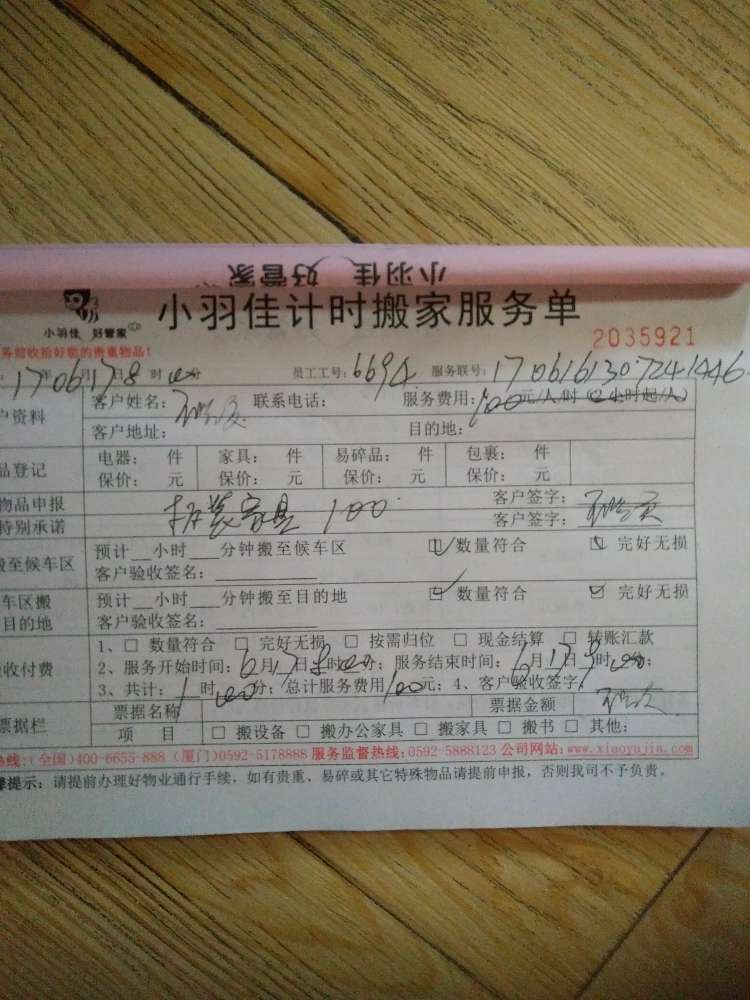 小羽佳 好管家
小羽佳 好管家
小羽佳计时搬家服务单
2035921
务前收拾好您的贵重物品!
17年06月17日8时00分 员工工号:6694 服务联号:1706161307241446
户资料 客户姓名: 联系电话: 服务费用:100元/人/时(2小时起/人)
客户地址: 目的地:
品登记 电器: 件 家具: 件 易碎品: 件 包裹: 件
保价: 元 保价: 元 保价: 元 保价: 元
物品申报 客户签字:
特别承诺 拆装家具 100 客户签字:
搬至候车区 预计__小时___分钟搬至候车区 ☑数量符合 ☑ 完好无损
客户验收签名:
车区搬 预计__小时___分钟搬至目的地 ☑ 数量符合 ☑ 完好无损
目的地 客户验收签名:
验收付费 1、□ 数量符合 □ 完好无损 □ 按需归位 □ 现金结算 □ 转账汇款
2、服务开始时间:6月17日8时00分;服务结束时间:6月17日9时00分;
3、共计:1时00分;总计服务费用100元;4、客户验收签字
票据栏 票据名称 票据金额
项 目 □ 搬设备 □ 搬办公家具 □ 搬家具 □ 搬书 □ 其他:
热线:(全国)400-6655-888 (厦门)0592-5178888 服务监督热线:0592-5888123 公司网站:www.xiaoyujia.com
提示:请提前办理好物业通行手续,如有贵重、易碎或其它特殊物品请提前申报,否则我司不予负责。